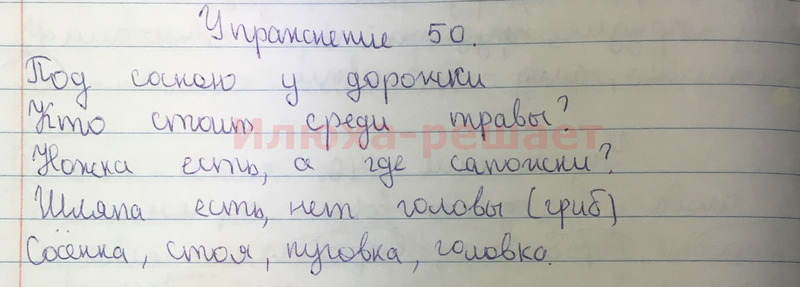 Упражнение 50.
Под сосною у дорожки
Кто стоит среди травы?
Илюха-решает
Ножка есть, а где сапожки?
Шляпа есть, нет головы (гриб)
Сосёнка, стоя, пуговка, головка.